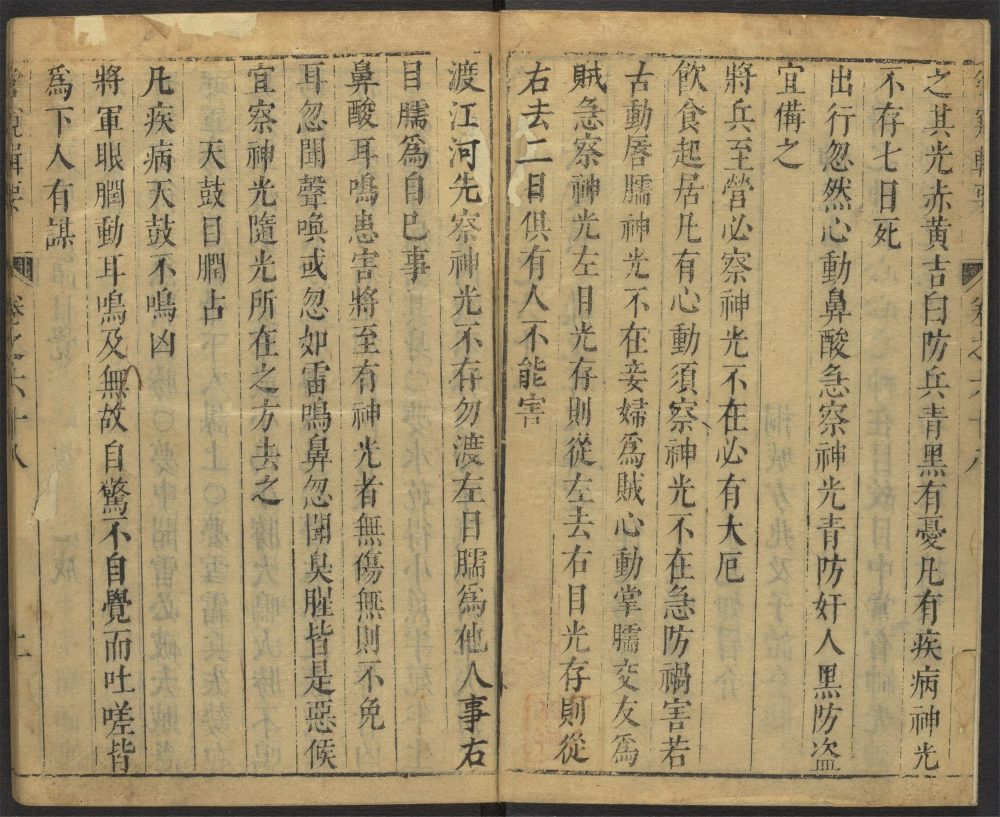 之其光赤黃吉白防兵青黑有憂凡有疾病神光
不存七日死
出行忽然心動鼻酸急察神光青防奸人黑防盜
宜備之
將兵至營必察神光不在必有大厄
飲食起居凡有心動須察神光不在急防禍害若
古動唇臑神光不在妾婦為賊心動掌臑交友為
賊急察神光左目光存則從左去右目光存則從
右去二目俱有人不能害
渡江河先察神光不存勿渡左目臑為他人事右
目臑為自巳事
鼻酸耳鳴患害將至有神光者無傷無則不免
耳忽聞聲喚或忽如雷鳴鼻忽聞臭腥皆是惡候
宜察神光隨光所在之方去之
天鼓目瞤占
凡疾病天鼓不鳴凶
將軍眼瞤動耳鳴及無故自驚不自覺而吐嗟皆
為下人有謀
卷之六十八